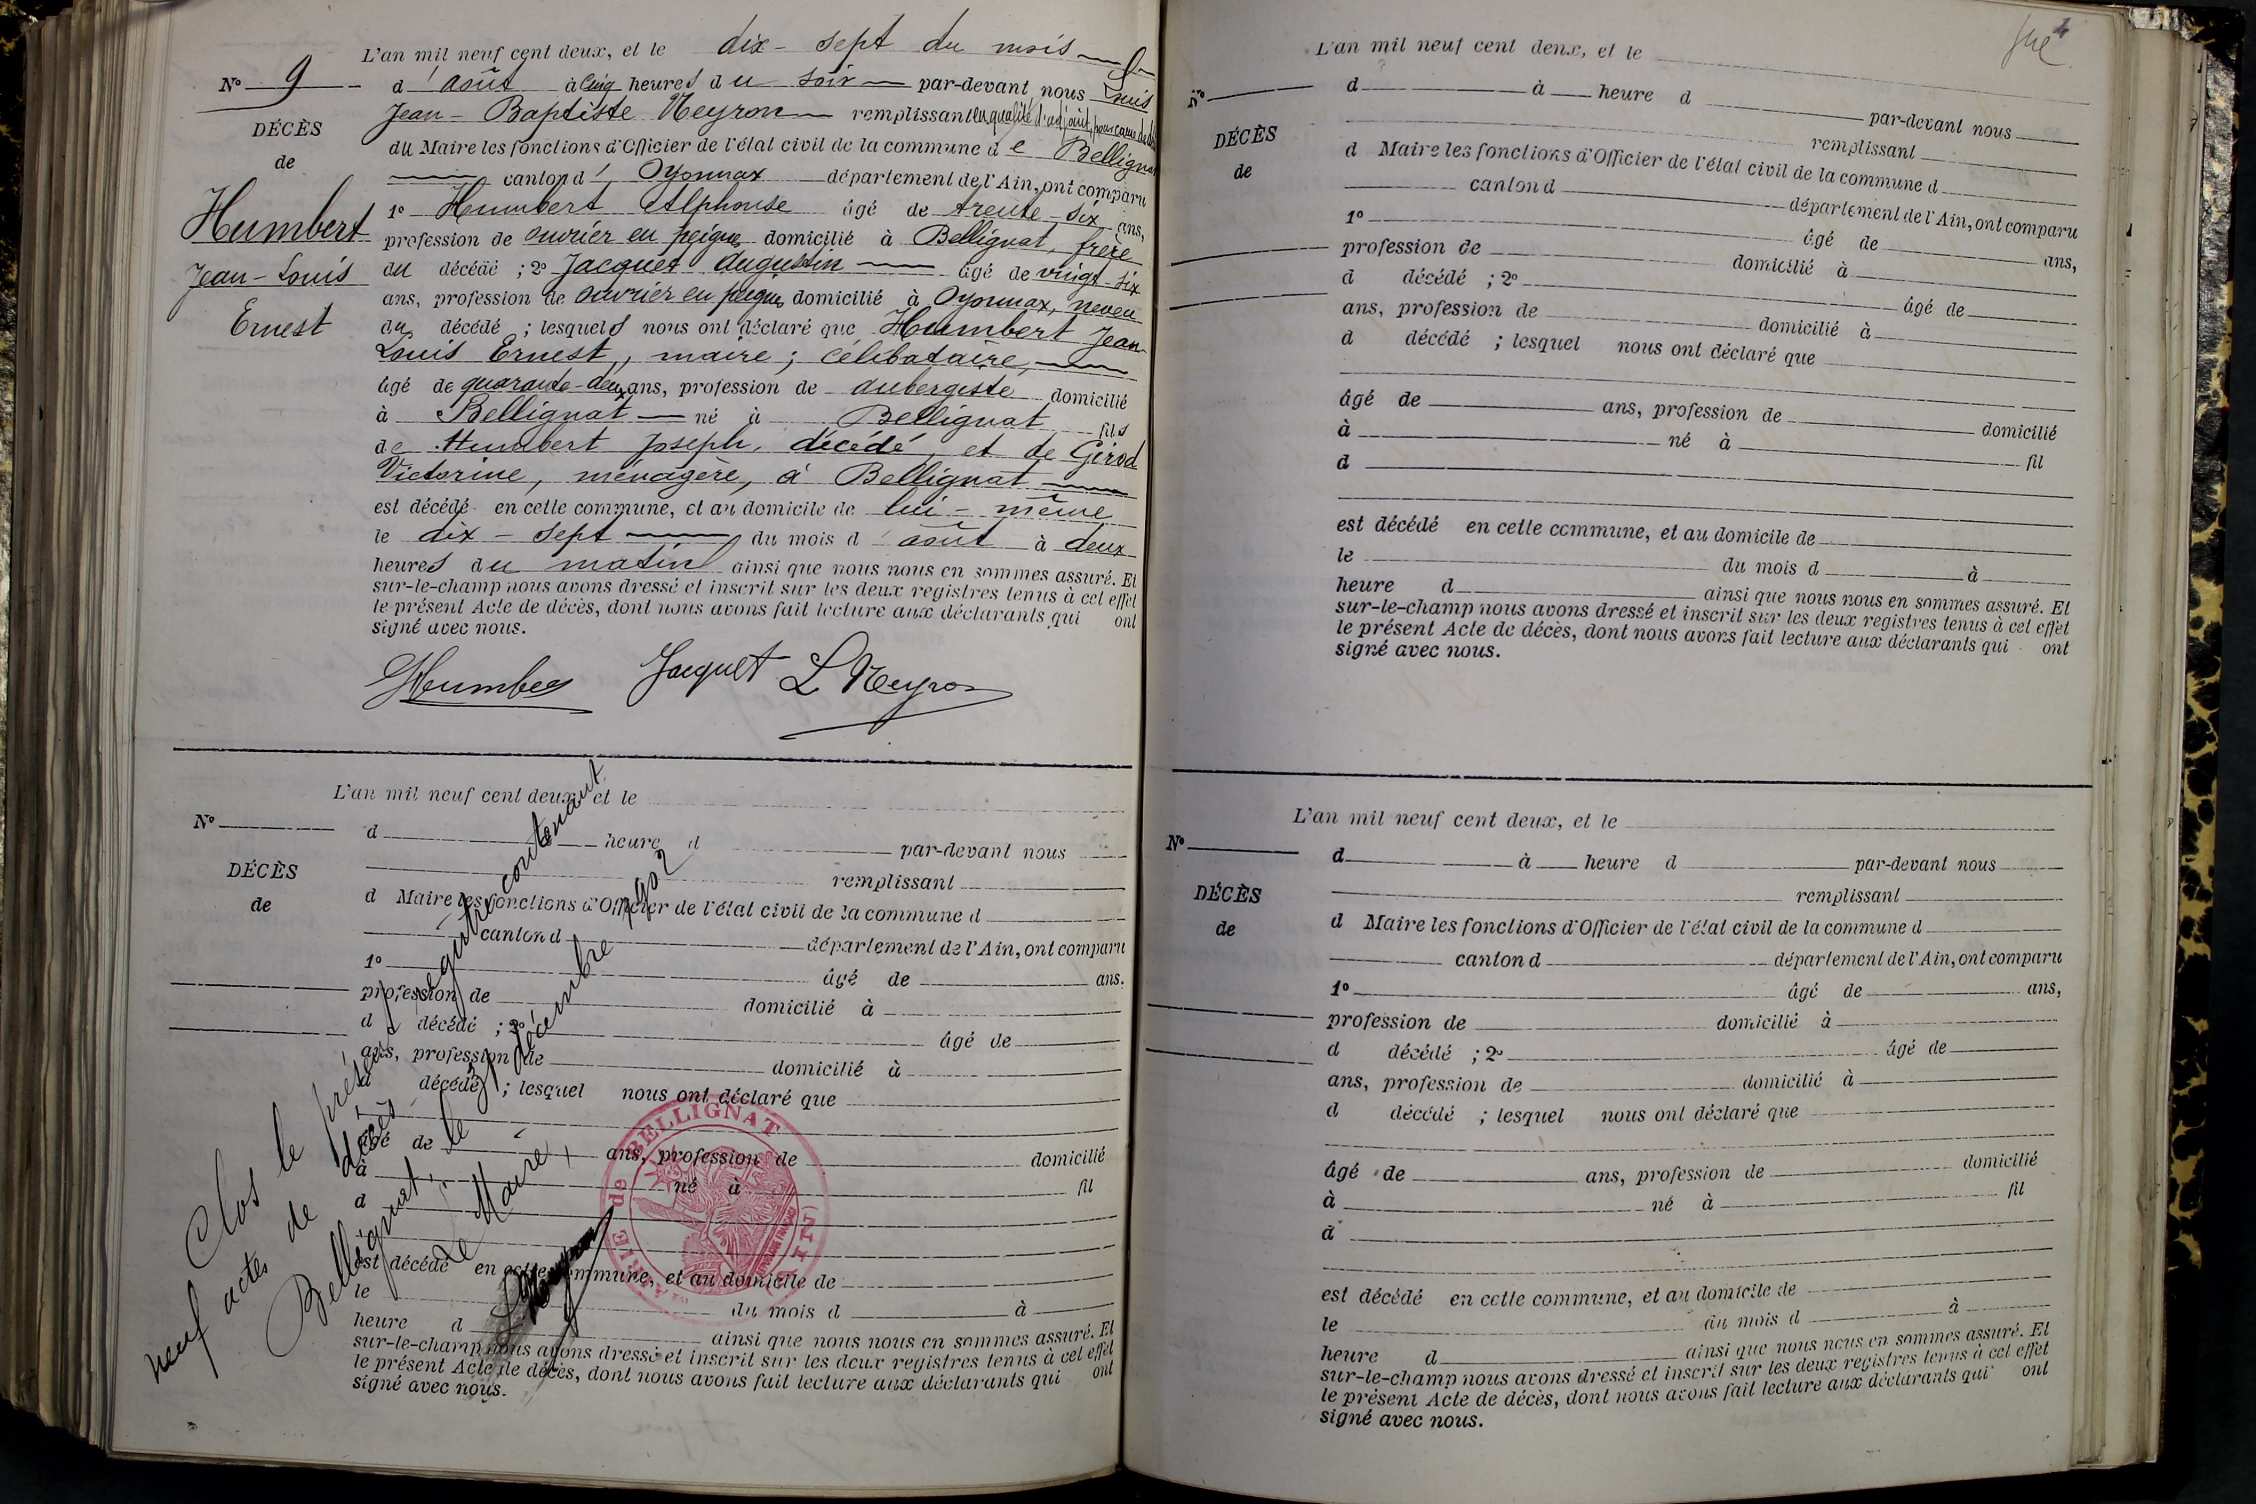 L'an mil neuf cent deux, et le dix-sept du mois
N° 9
d'août à cinq heures du soir par-devant nous Louis
Jean-Baptiste Neyron remplissant en qualité d'adjoint, pour cause de décès
DÉCÈS
de
du Maire les fonctions d'Officier de l'état civil de la commune de Bellignat
canton d'Oyonnax département de l'Ain, ont comparu
Humbert
Jean-Louis
Ernest
1° Humbert Alphonse âgé de trente-six ans,
profession de ouvrier en peignes domicilié à Bellignat, frère
du décédé ; 2° Jacquet Augustin âgé de vingt-six
ans, profession de ouvrier en peignes domicilié à Oyonnax, neveu
du décédé ; lesquels nous ont déclaré que Humbert Jean
Louis Ernest, maire ; célibataire,
âgé de quarante-deux ans, profession de aubergiste domicilié
à Bellignat né à Bellignat fils
de Humbert Joseph, décédé, et de Girod
Victorine, ménagère, à Bellignat
est décédé en cette commune, et au domicile de lui-même
le dix-sept du mois d'août à deux
heures du matin ainsi que nous nous en sommes assuré. Et
sur-le-champ nous avons dressé et inscrit sur les deux registres tenus à cet effet
le présent Acte de décès, dont nous avons fait lecture aux déclarants qui ont
signé avec nous.
Humbert Jacquet L Neyron
L'an mil neuf cent deux, et le
N°
d à heure d par-devant nous
remplissant
DÉCÈS
de
d Maire les fonctions d'Officier de l'état civil de la commune d
canton d département de l'Ain, ont comparu
1° âgé de ans.
profession de domicilié à
d décédé ; 2° âgé de
ans, profession de domicilié à
d décédé ; lesquel nous ont déclaré que
âgé de ans, profession de domicilié
à né à fil
d
est décédé en cette commune, et au domicile de
le du mois d à
heure d ainsi que nous nous en sommes assuré. Et
sur-le-champ nous avons dressé et inscrit sur les deux registres tenus à cet effet
le présent Acte de décès, dont nous avons fait lecture aux déclarants qui ont
signé avec nous.
Clos le présent registre contenant
neuf actes de décès
Bellignat, le 31 décembre 1902
Le Maire,
L Neyron
MAIRIE de BELLIGNAT (AIN)
L'an mil neuf cent deux, et le
N°
d à heure d par-devant nous
remplissant
DÉCÈS
de
d Maire les fonctions d'Officier de l'état civil de la commune d
canton d département de l'Ain, ont comparu
1° âgé de ans,
profession de domicilié à
d décédé ; 2° âgé de
ans, profession de domicilié à
d décédé ; lesquel nous ont déclaré que
âgé de ans, profession de domicilié
à né à fil
d
est décédé en cette commune, et au domicile de
le du mois d à
heure d ainsi que nous nous en sommes assuré. Et
sur-le-champ nous avons dressé et inscrit sur les deux registres tenus à cet effet
le présent Acte de décès, dont nous avons fait lecture aux déclarants qui ont
signé avec nous.
L'an mil neuf cent deux, et le
N°
d à heure d par-devant nous
remplissant
DÉCÈS
de
d Maire les fonctions d'Officier de l'état civil de la commune d
canton d département de l'Ain, ont comparu
1° âgé de ans,
profession de domicilié à
d décédé ; 2° âgé de
ans, profession de domicilié à
d décédé ; lesquel nous ont déclaré que
âgé de ans, profession de domicilié
à né à fil
d
est décédé en cette commune, et au domicile de
le du mois d à
heure d ainsi que nous nous en sommes assuré. Et
sur-le-champ nous avons dressé et inscrit sur les deux registres tenus à cet effet
le présent Acte de décès, dont nous avons fait lecture aux déclarants qui ont
signé avec nous.